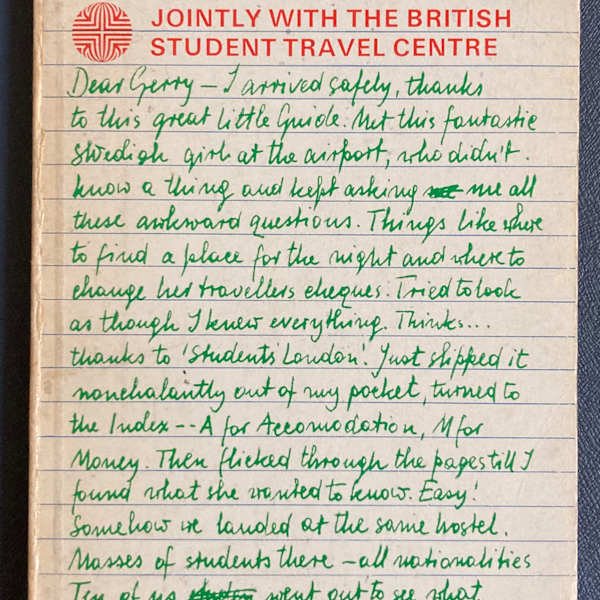 JOINTLY WITH THE BRITISH
STUDENT TRAVEL CENTRE
Dear Gerry – I arrived safely, thanks
to this great little Guide. Met this fantastic
Swedish girl at the airport, who didn't
know a thing and kept asking me all
these awkward questions. Things like where
to find a place for the night and where to
change her travellers cheques. Tried to look
as though I knew everything. Thinks...
thanks to 'Students' London'. Just slipped it
nonchalantly out of my pocket, turned to
the Index -- A for Accomodation, M for
Money. Then flicked through the pages till I
found what she wanted to know. Easy!
Somehow we landed at the same hostel.
Masses of students there – all nationalities
Ten of us went out to see what